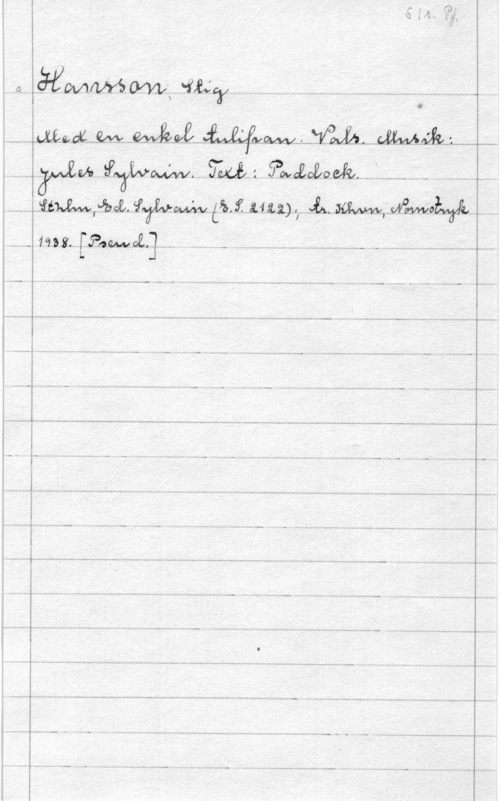 S 1 r. Pf.
Hansson, Stig
Med en enkel tulipan. Vals. Musik:
Jules Sylvain. Text: Paddock.
Sthlm, Ed. Sylvain (E.S. 2122); tr. Khvn, Nomotryk
1938. [Pseud.]